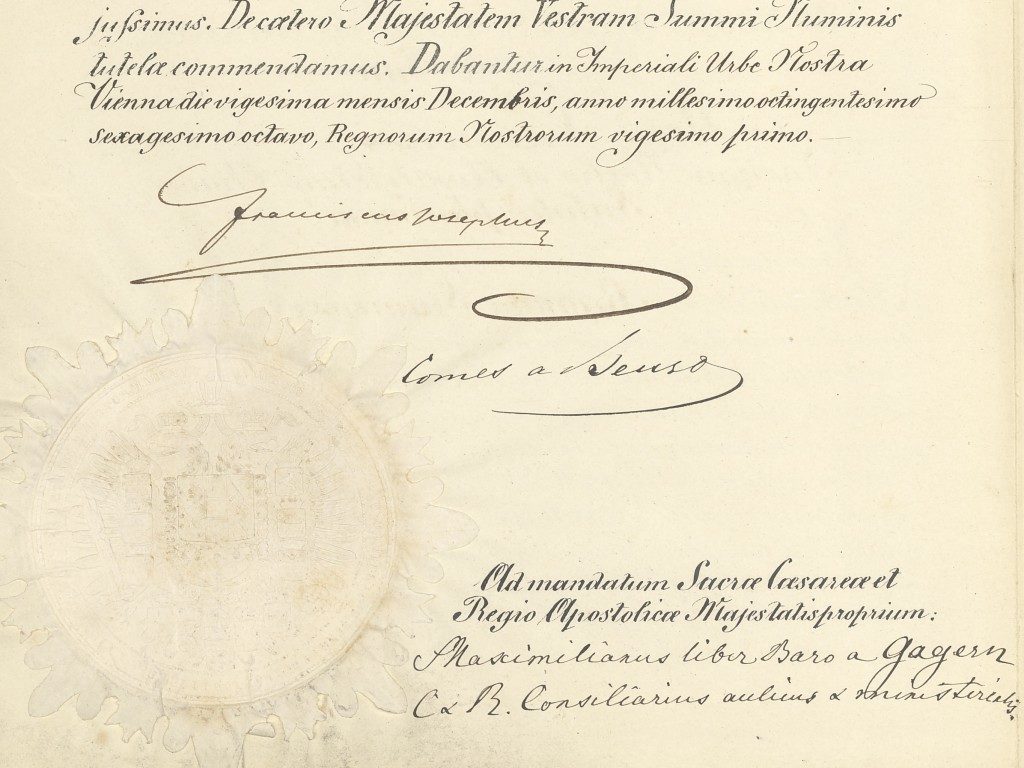 jussimus. De cætero Majestatem Vestram Summi Numinis
tutelæ commendamus. Dabantur in Imperiali Urbe Nostra
Vienna die vigesima mensis Decembris, anno millesimo octingentesimo
sexagesimo octavo, Regnorum Nostrorum vigesimo primo.
Franciscus Josephus
Comes a Beust
Ad mandatum Sacræ Cæsareæ et
Regio Apostolicæ Majestatis proprium:
Maximilianus liber Baro a Gagern
C & R. Consiliarius aulicus & ministerialis.